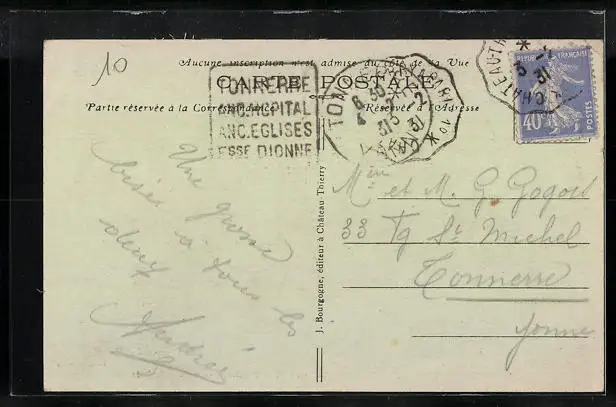 10
Aucune inscription n'est admise du côté de la Vue
CARTE POSTALE
Partie réservée à la Correspondance
Réservée à l'Adresse
TONNERRE
ANC.HOPITAL
ANC.EGLISES
FSSE DIONNE
TON
31
RÉPUBLIQUE FRANÇAISE
40c
POSTES
Une grosse
bises à tous les
deux
Andrée
J. Bourgogne, éditeur à Château-Thierry
Mme et M. G. Gogois
33 Fg St Michel
Tonnerre
Yonne